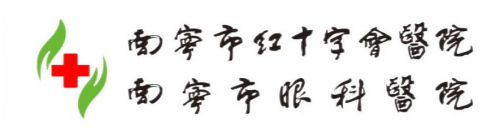 南寧市红十字會醫院
南寧市眼科醫院